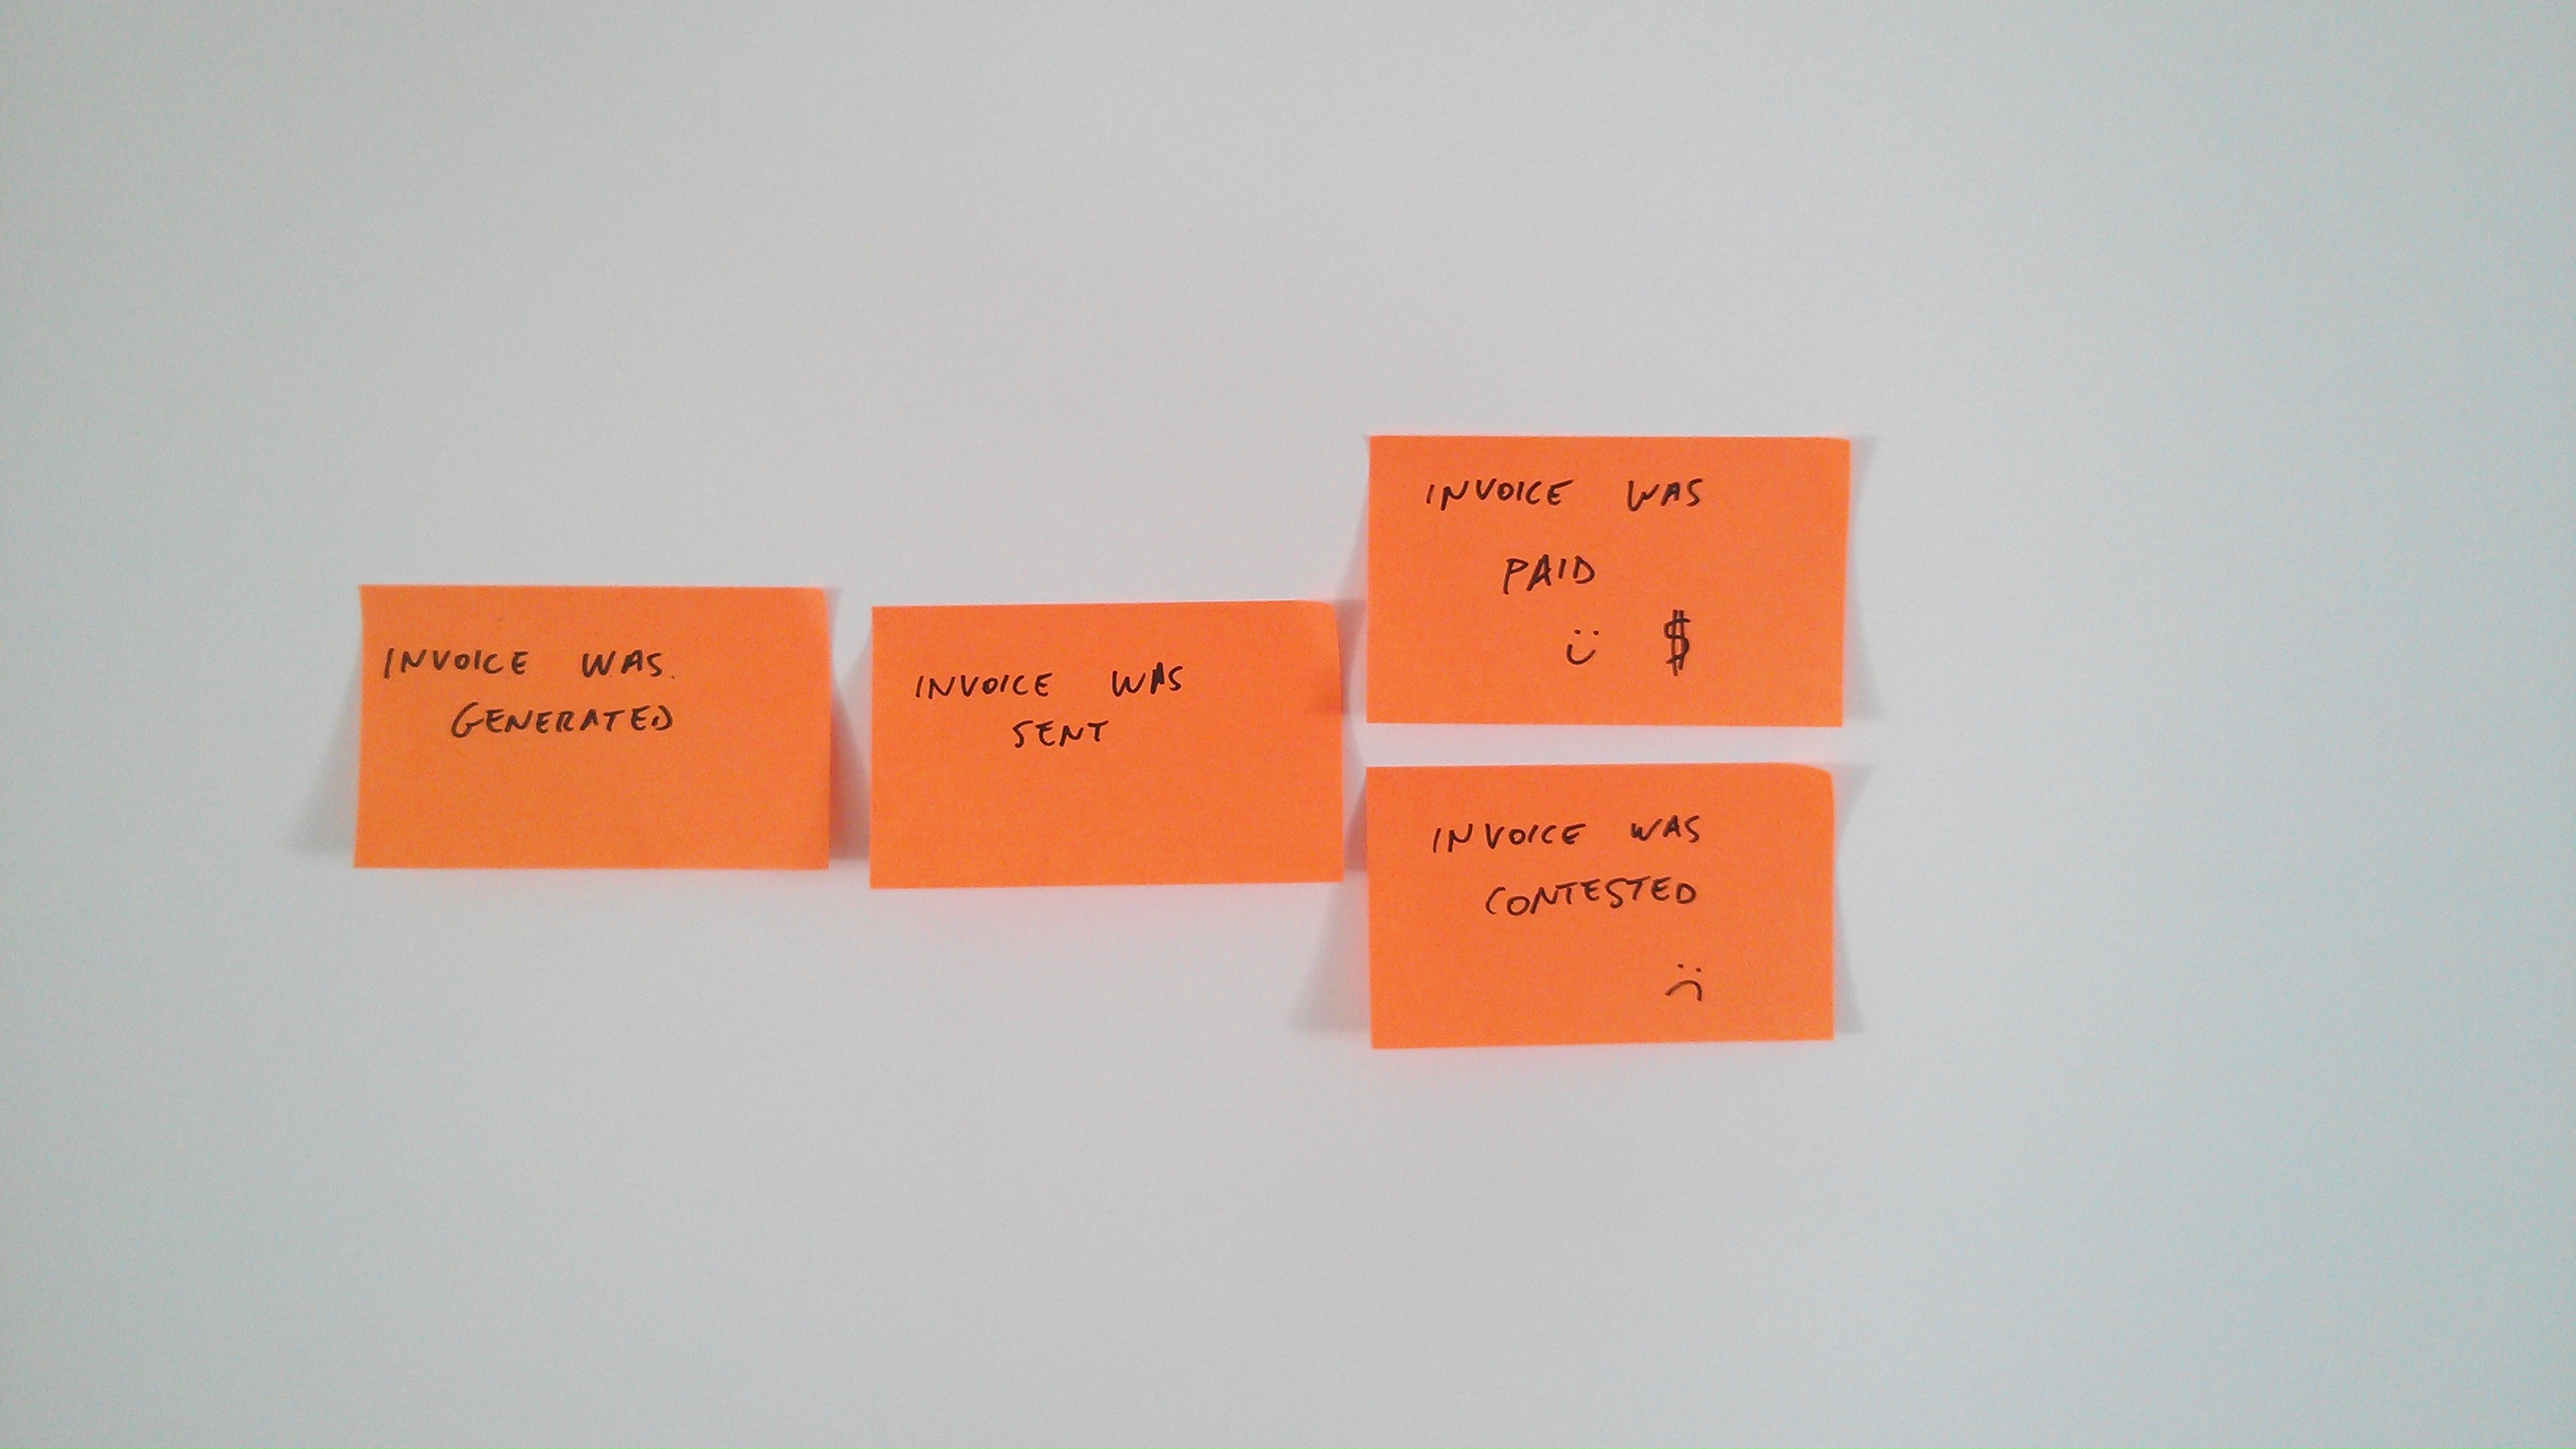 INVOICE WAS.
GENERATED
INVOICE WAS
SENT
INVOICE WAS
PAID
$
INVOICE WAS
CONTESTED